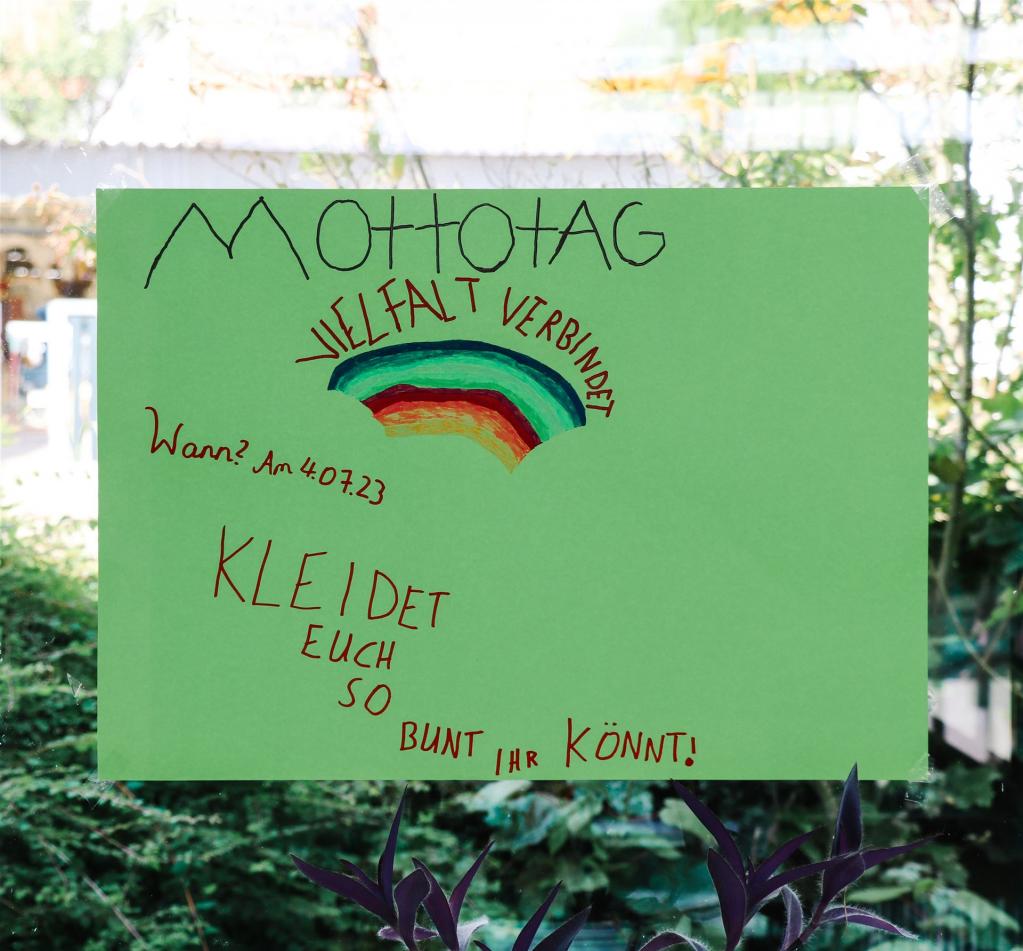 MOttOtAG
VIELFALT VERBINDET
Wann? Am 4.07.23
KLEIDET
EUCH
SO
BUNT IHR KÖNNT!